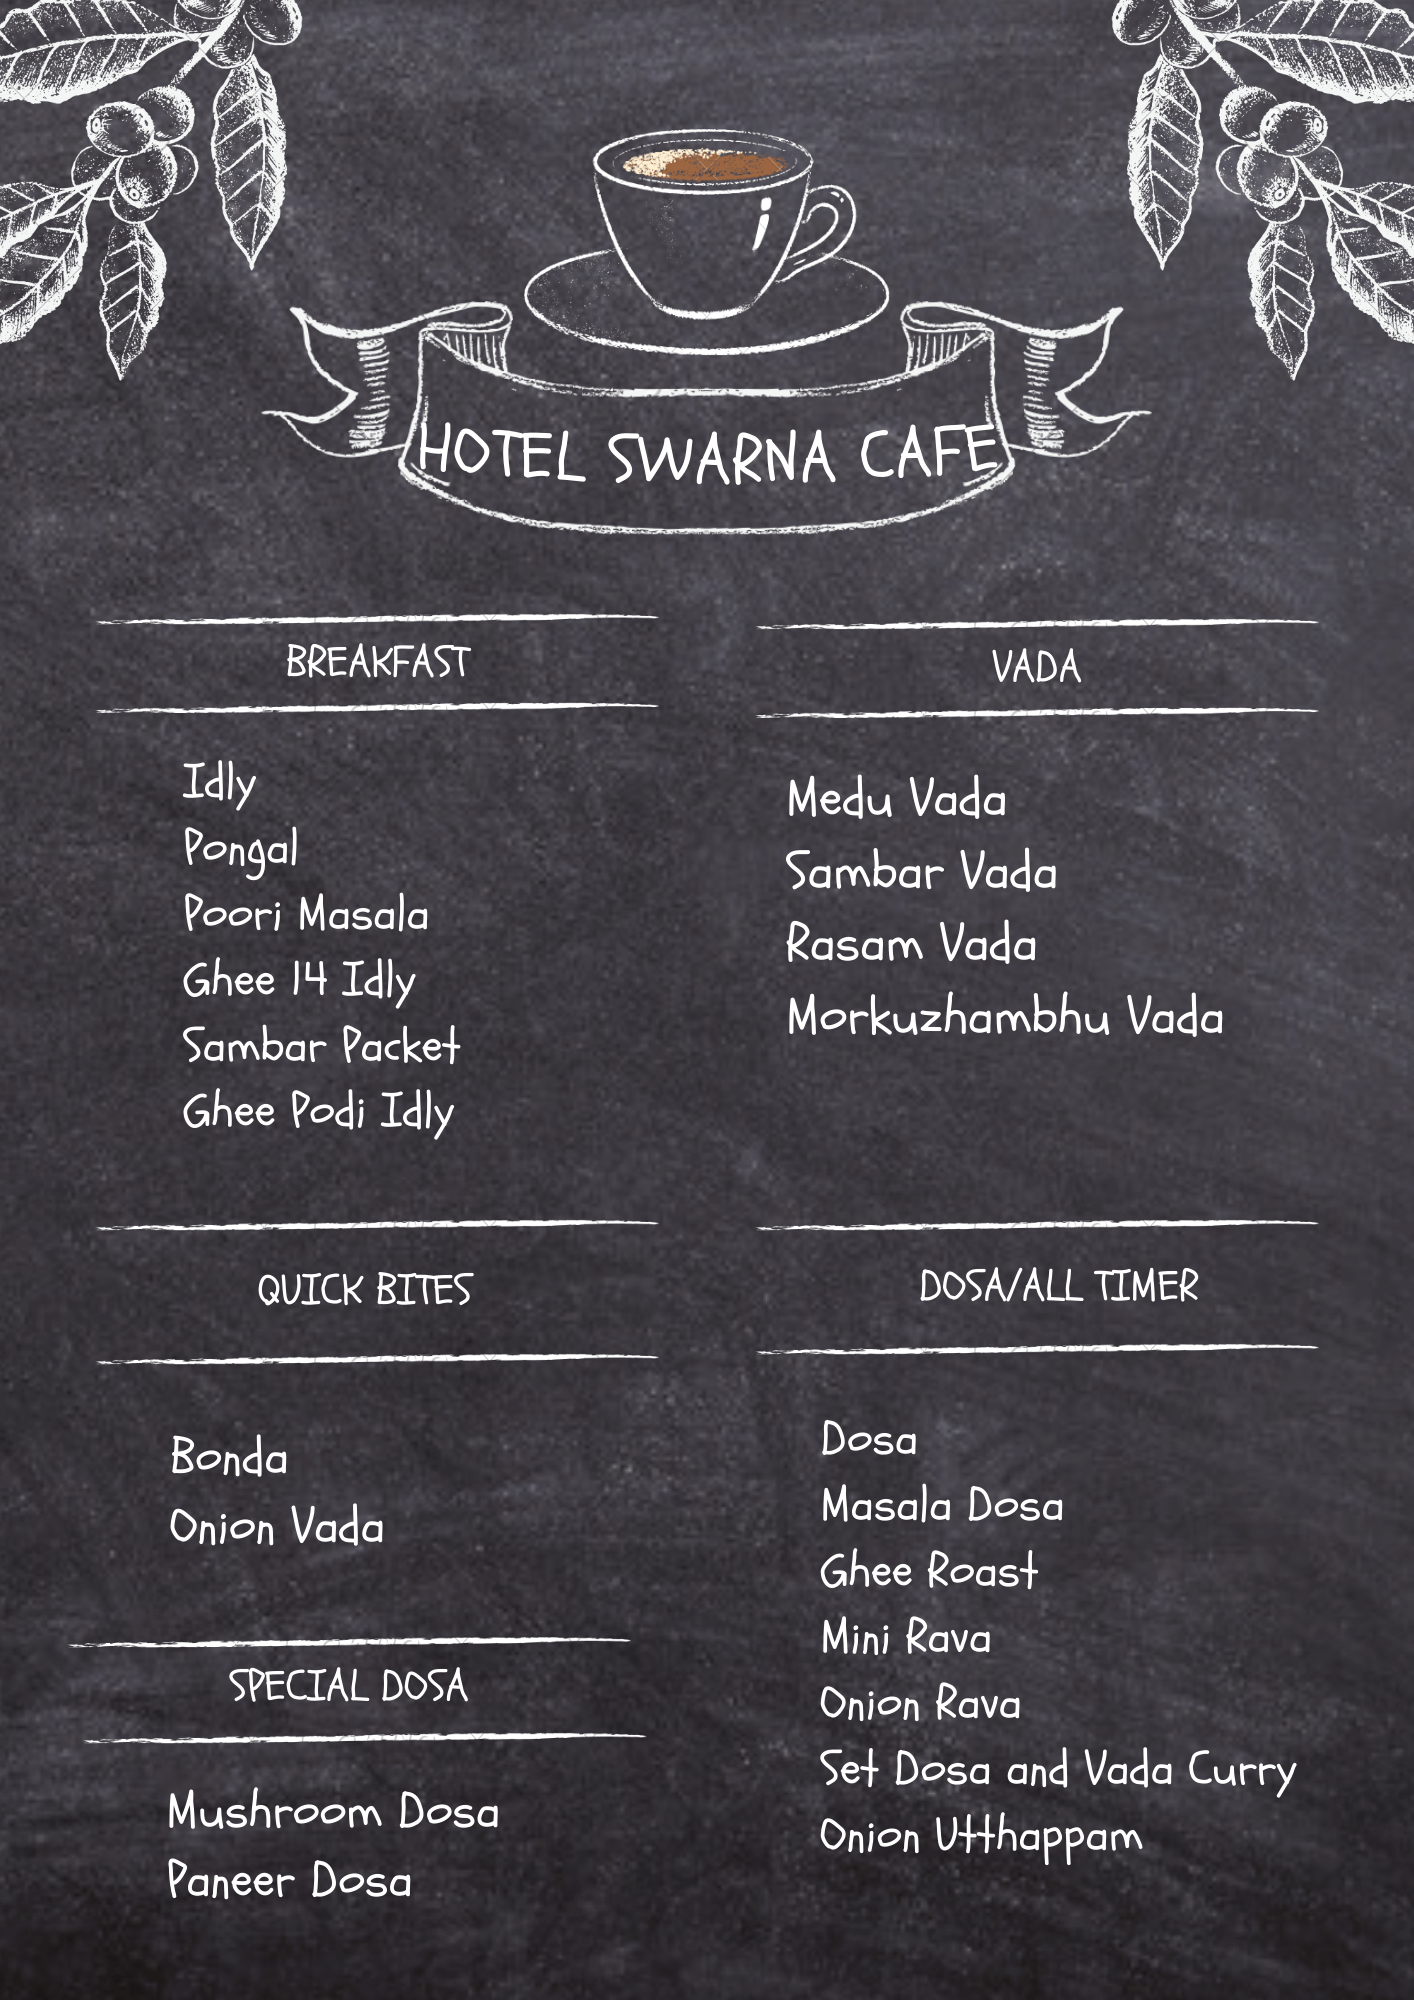 HOTEL SWARNA CAFE
BREAKFAST
Idly
Pongal
Poori Masala
Ghee 14 Idly
Sambar Packet
Ghee Podi Idly
VADA
Medu Vada
Sambar Vada
Rasam Vada
Morkuzhambhu Vada
QUICK BITES
Bonda
Onion Vada
SPECIAL DOSA
Mushroom Dosa
Paneer Dosa
DOSA/ALL TIMER
Dosa
Masala Dosa
Ghee Roast
Mini Rava
Onion Rava
Set Dosa and Vada Curry
Onion Utthappam